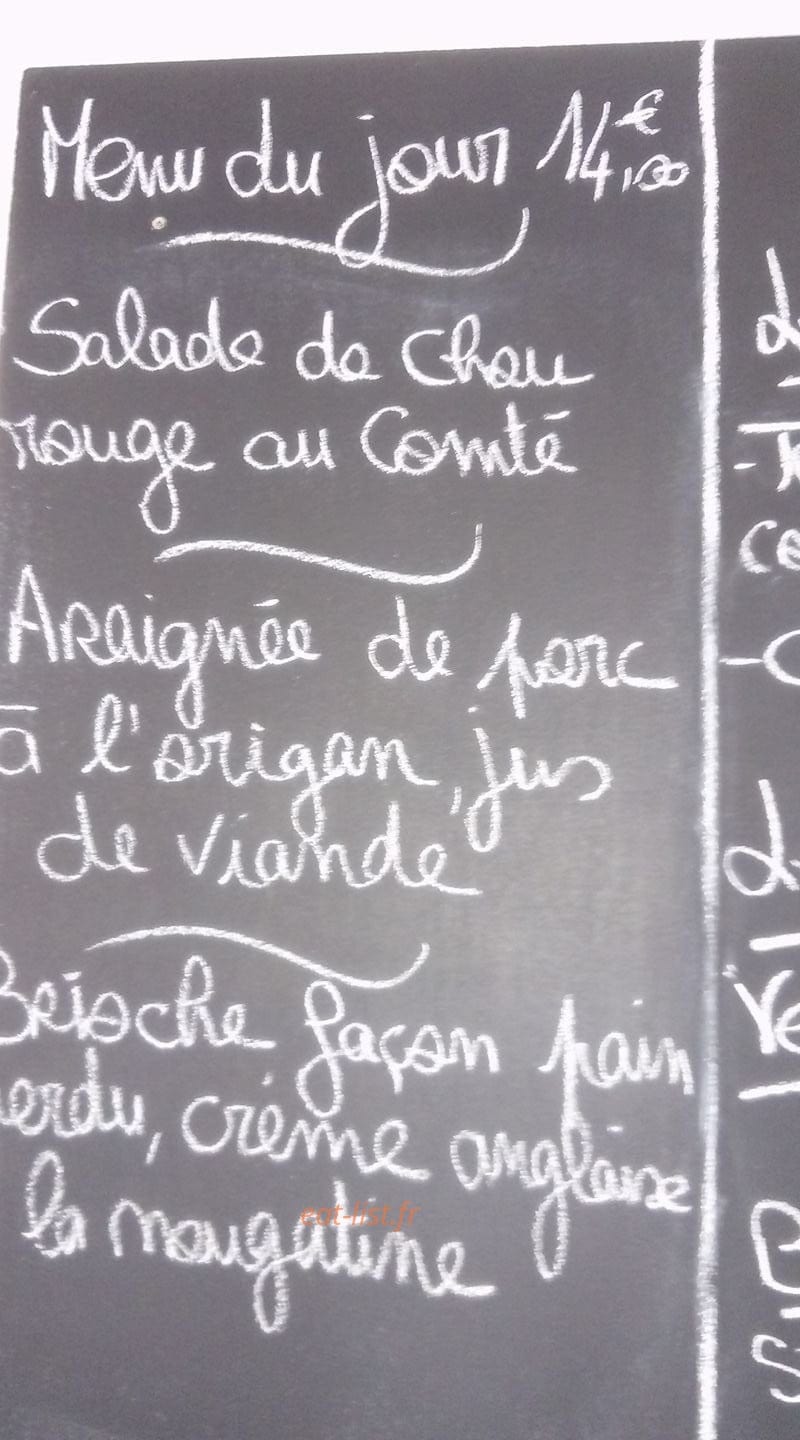 Menu du jour 14,00€
Salade de Chou
rouge au Comté
Araignée de porc
à l'origan, jus
de viande
Brioche façon pain
perdu, crème anglaise
la nougatine
eat-list.fr